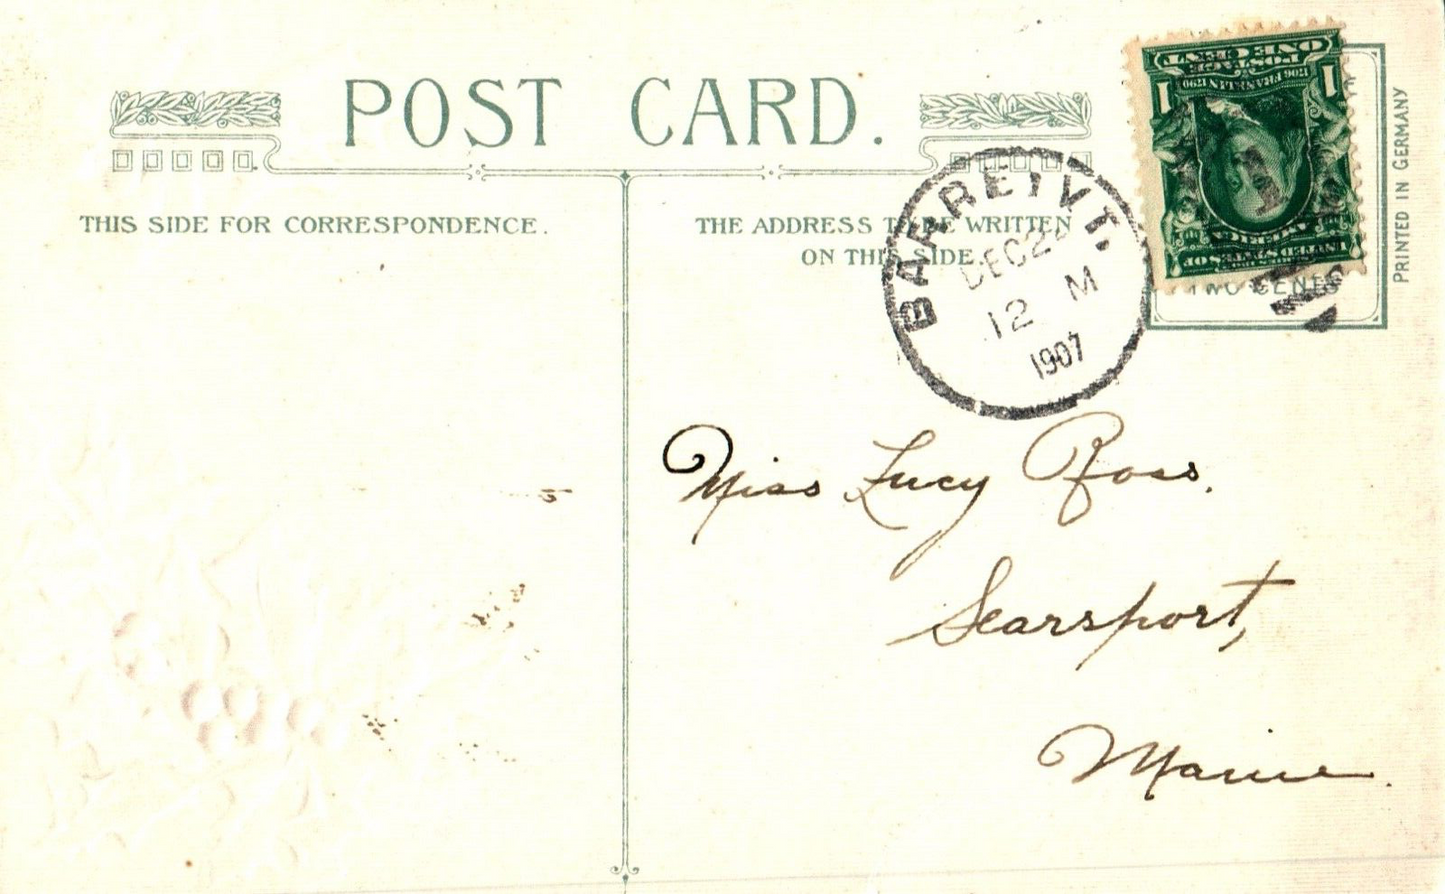 POST CARD.
THIS SIDE FOR CORRESPONDENCE.
THE ADDRESS TO BE WRITTEN
ON THIS SIDE.
BARRE, VT.
DEC 2
12 M
1907
ONE CENT
POSTAGE
1706 FRANKLIN 1790
1 1
SERIES 1902
UNITED STATES OF
TWO CENTS
PRINTED IN GERMANY
Miss Lucy Ross.
Searsport,
Maine.